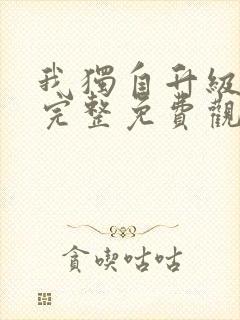 我獨自升級
完整免費觀
貪喫咕咕